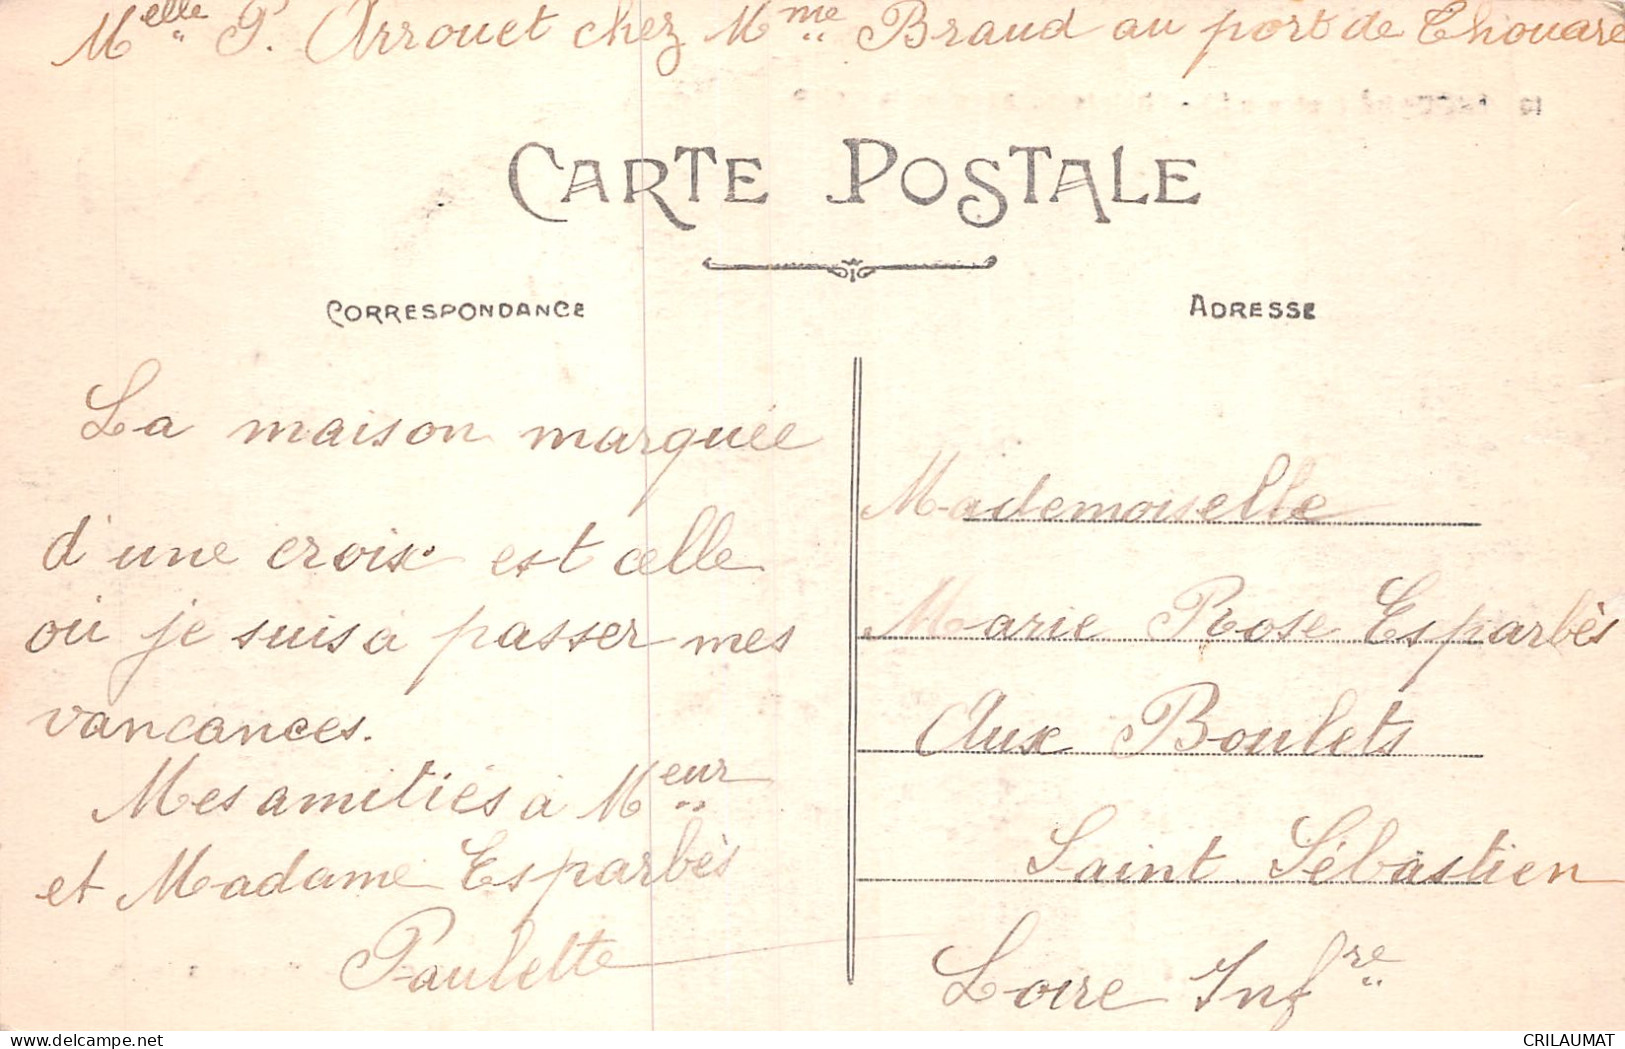 Melle P. Arrouet chez Mme Braud au port de Thouaré
CARTE POSTALE
CORRESPONDANCE
ADRESSE
La maison marquée
d'une croix est celle
où je suis à passer mes
vancances.
Mes amitiés à Meur
et Madame Esparbès
Paulette
Mademoiselle
Marie Rose Esparbès
Aux Boulets
Saint Sébastien
Loire Infre
CRILAUMAT
delcampe.net